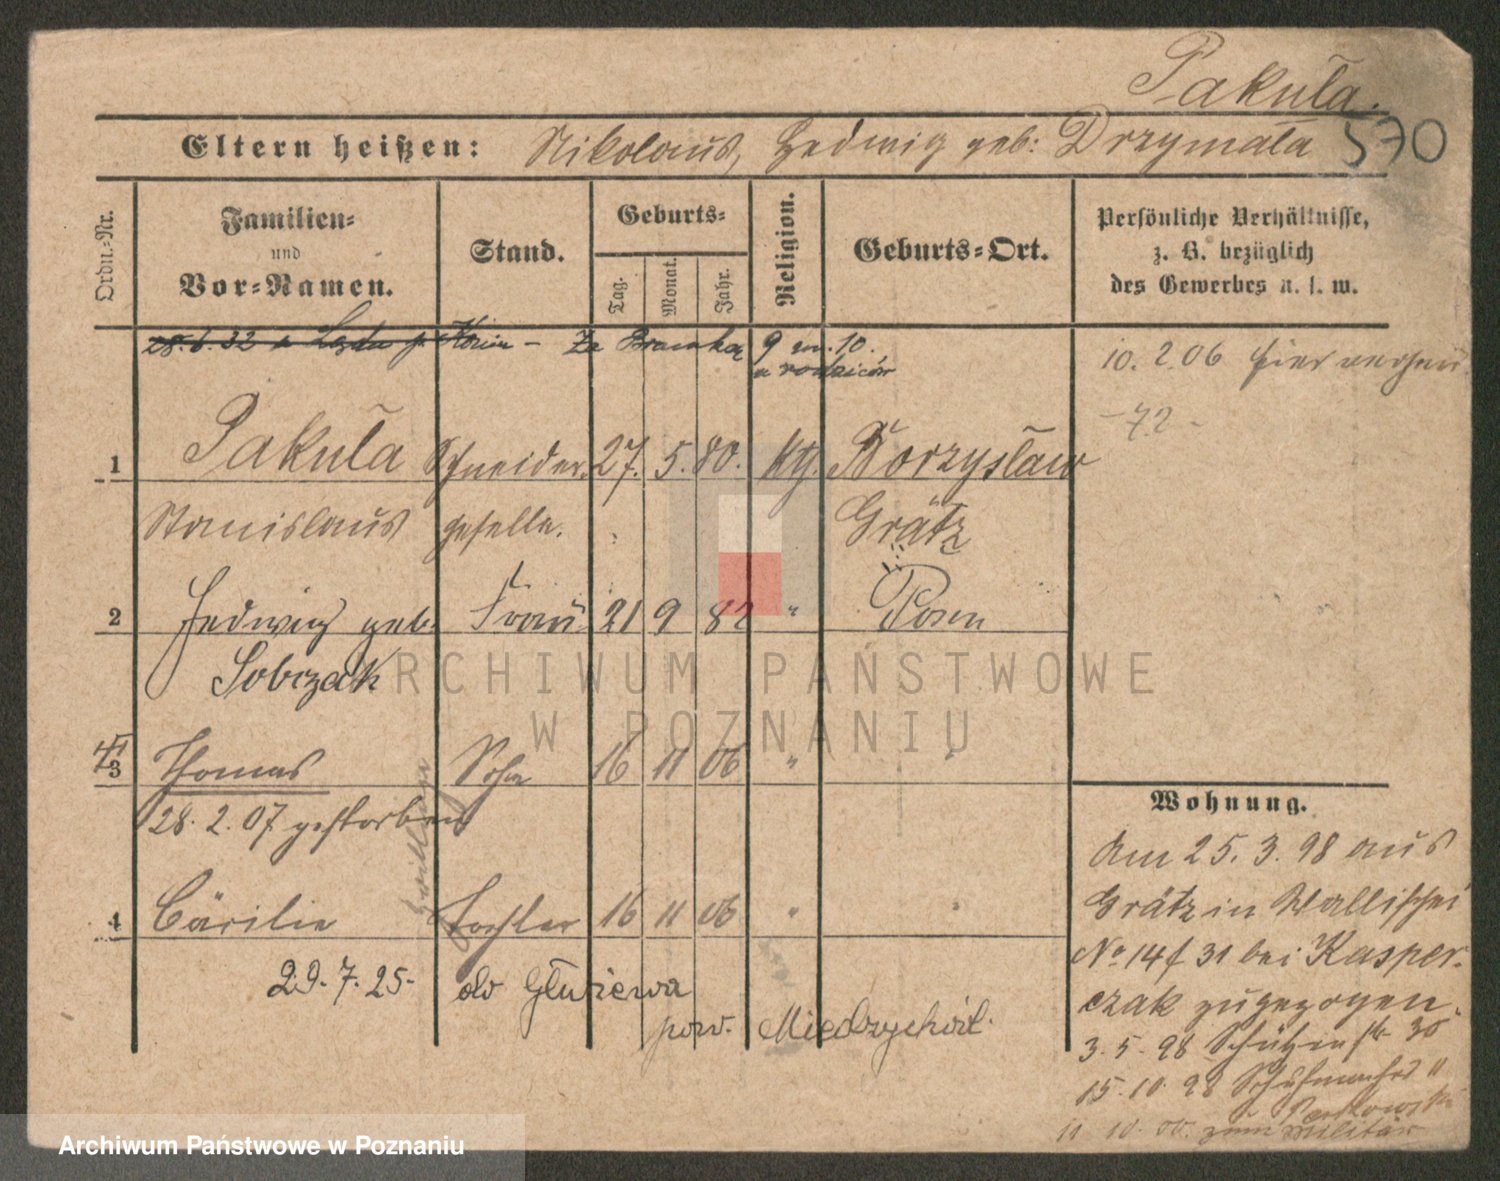 Pakuła.
570
Eltern heißen: Nikolaus, Hedwig geb: Drzymała
Ordn.-Nr.
Familien-
und
Vor-Namen.
Stand.
Geburts-
Tag.
Monat.
Jahr.
Religion.
Geburts-Ort.
Persönliche Verhältnisse,
z. B. bezüglich
des Gewerbes u. s. w.
28.6.32 – Za Bramką 9 m. 10.
u rodziców
10. 2. 06 hier
72 -
1 Pakuła Schneider 27. 5. 80. kth. Borzysław
Stanislaus geselle. Grätz
2 Hedwig geb. Frau 21 9 82 " Posen
Sobczak
3 Thomas Sohn 16 11 06 " "
28. 2. 07 gestorben
Zwillinge
4 Cäcilie Tochter 16 11 06 " "
29. 7. 25. do
pow. Międzychód.
Wohnung.
Am 25. 3. 98 aus
Grätz in Wallischei
No 14 f 31 bei Kasper-
czak zugezogen.
3. 5. 98 Schützenstr 30
15. 10. 98 Schuhmacherstr 11
11 10. 00. zum Militär
ARCHIWUM PAŃSTWOWE
W POZNANIU
Archiwum Państwowe w Poznaniu